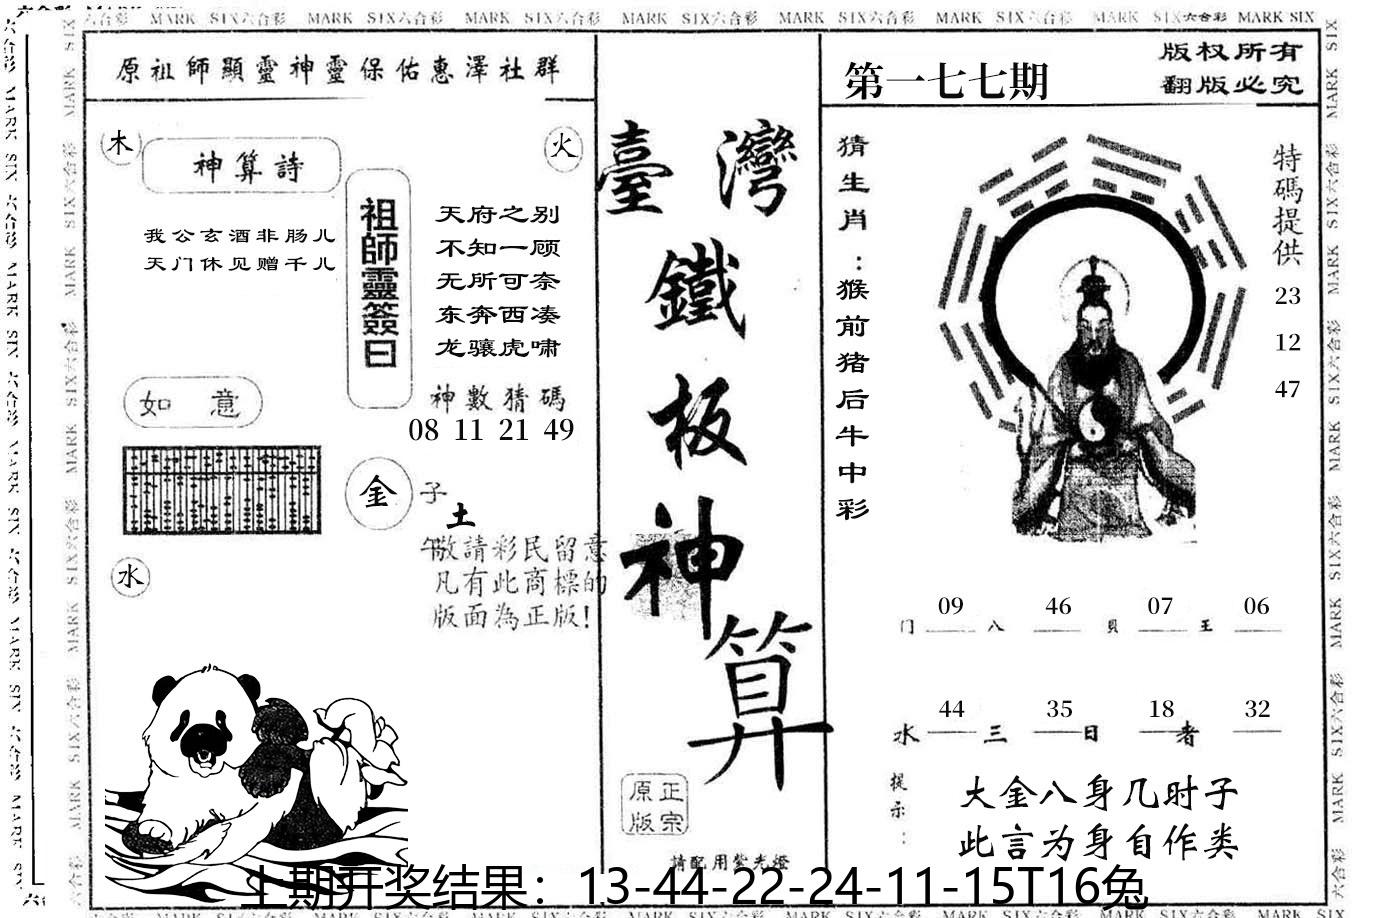 MARK SIX六合彩 MARK SIX六合彩 MARK SIX六合彩 MARK SIX六合彩 MARK SIX六合彩 MARK SIX六合彩 MARK SIX六合彩 MARK SIX
原祖師顯靈神靈保佑惠澤社群
木
神算詩
火
我公玄酒非肠儿
天门休见赠千儿
祖師靈簽曰
天府之别
不知一顾
无所可奈
东奔西凑
龙骧虎啸
如意
神數猜碼
08 11 21 49
金
子
土
午
敬請彩民留意
凡有此商標的
版面為正版!
水
臺灣
鐵
板
神
算
原正
版宗
請配用紫光燈
第一七七期
版权所有
翻版必究
猜生肖:猴前猪后牛中彩
特碼提供
23
12
47
09 46 07 06
门 八 貝 王
44 35 18 32
水 三 日 者
提示:
大金八身几时子
此言为身自作类
上期开奖结果：13-44-22-24-11-15T16兔